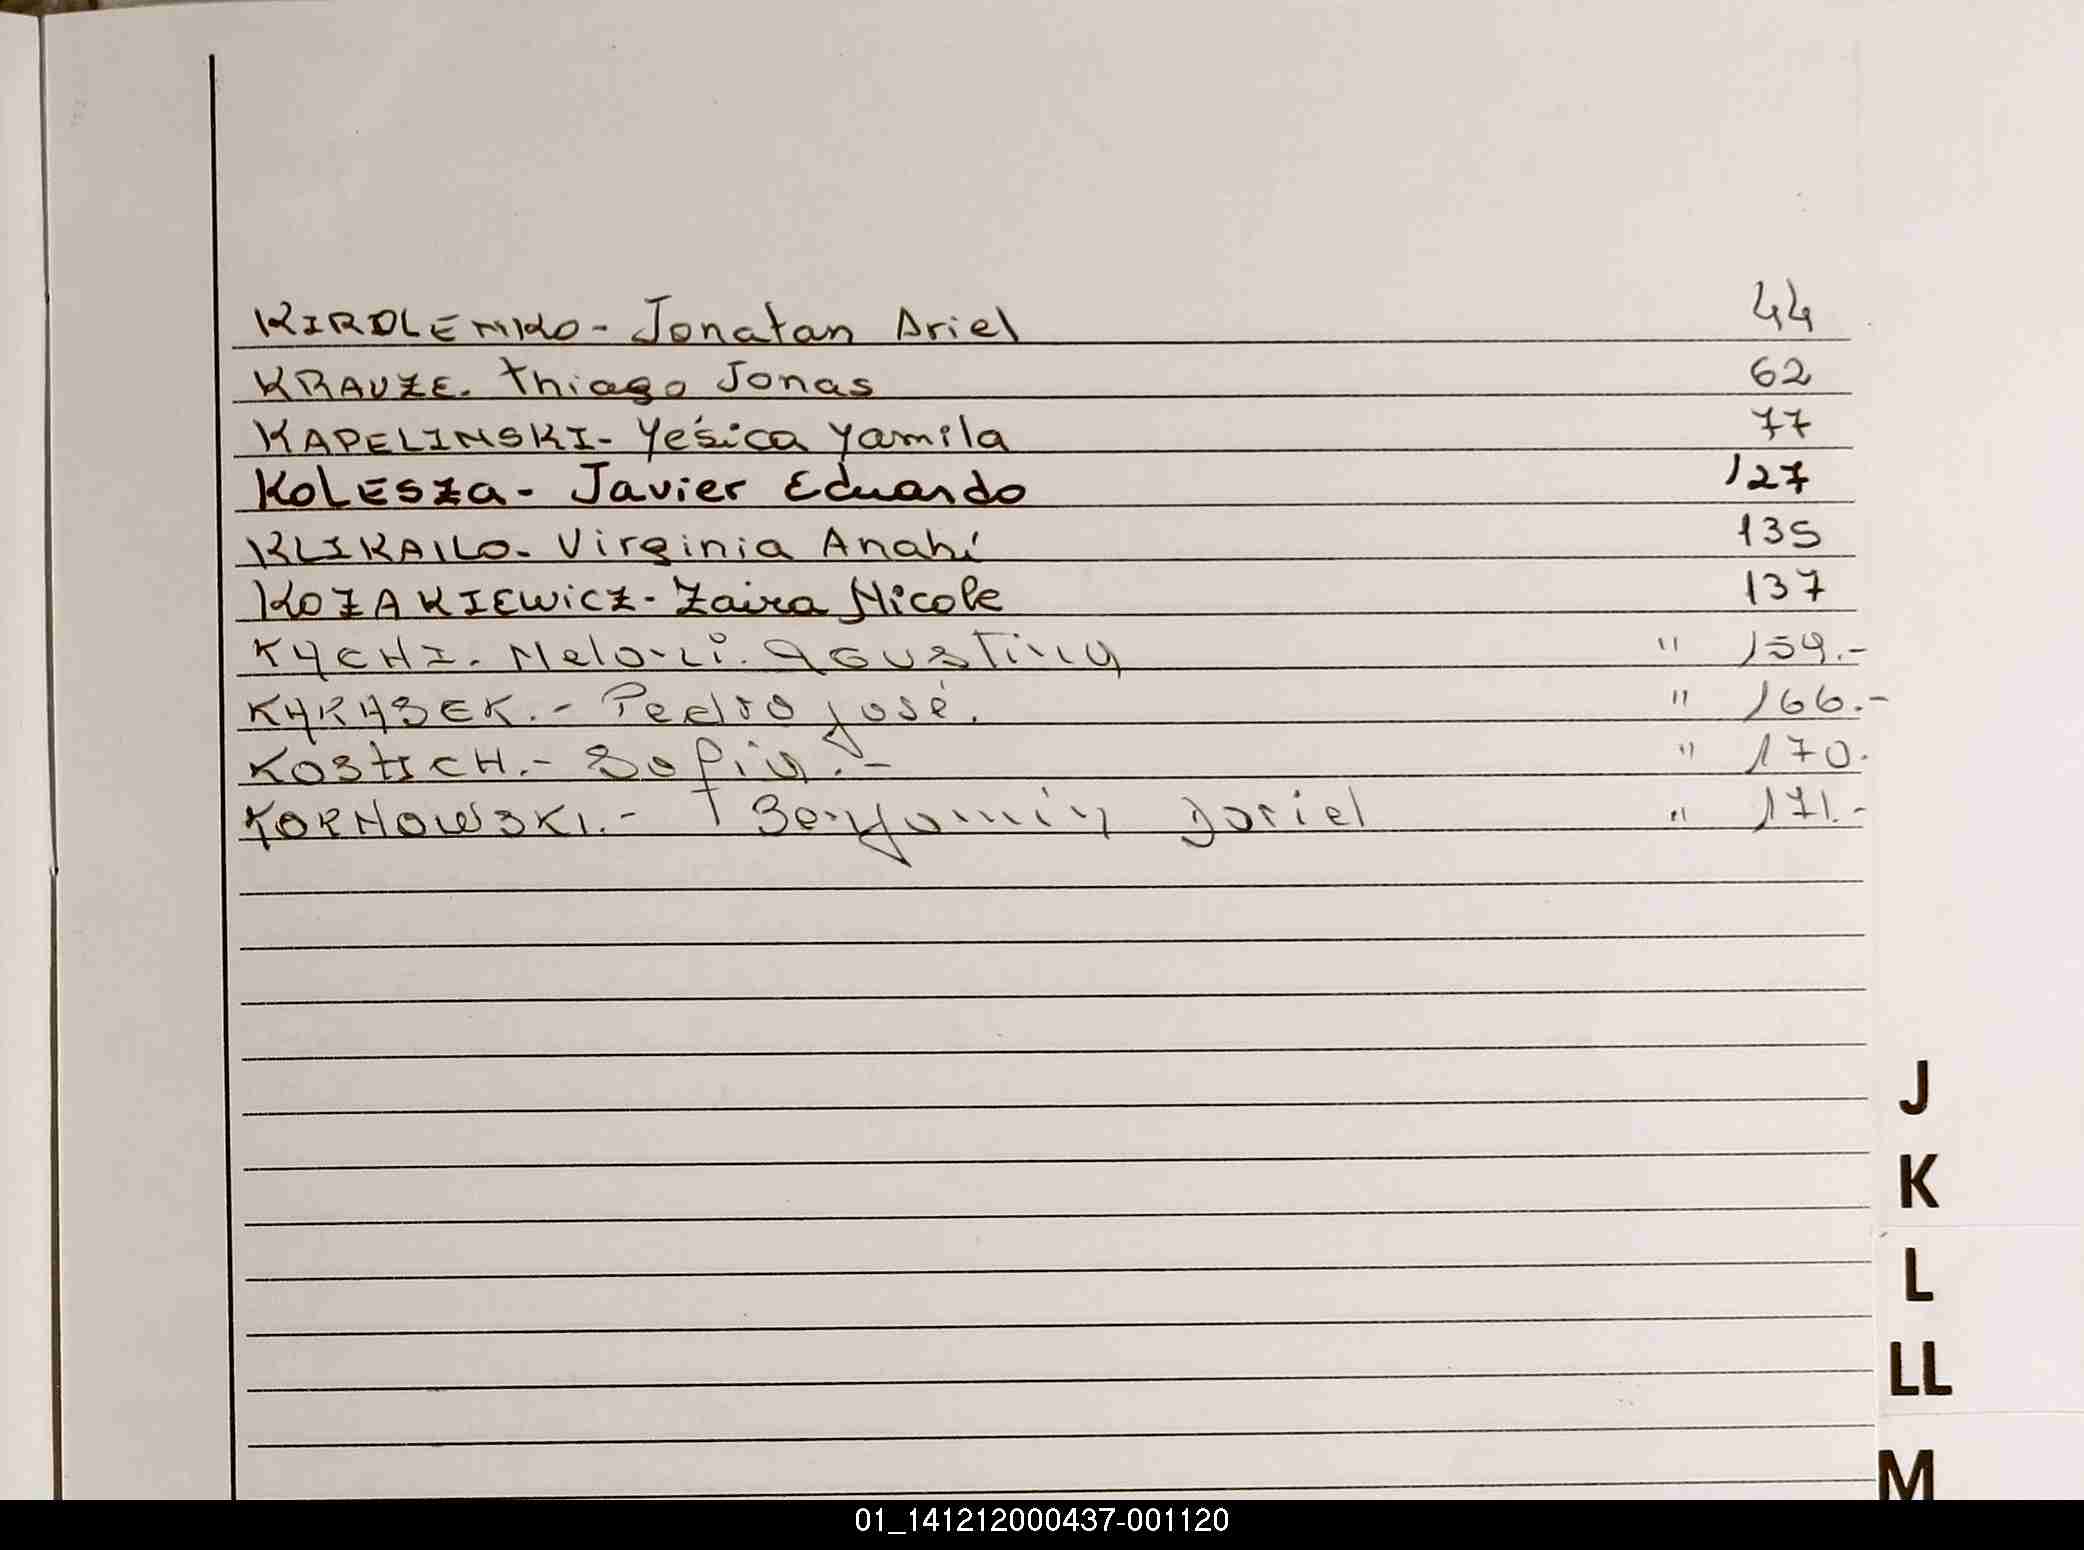 KIRDLENKO - Jonatan Ariel 44
KRAUZE. Thiago Jonas 62
KAPELINSKI - Yésica Yamila 77
KOLESZA - Javier Eduardo 127
KLIKAILO - Virginia Anahí 135
KOZAKIEWICZ - Zaira Nicole 137
KACHI. Melani. Agustina " 159.-
KARASEK.- Pedro José. " 166.-
KOSTICH.- Sofia.- " 170.
KORNOWSKI.- Benjamín Jariel " 171.-
J
K
L
LL
M
01_141212000437-001120